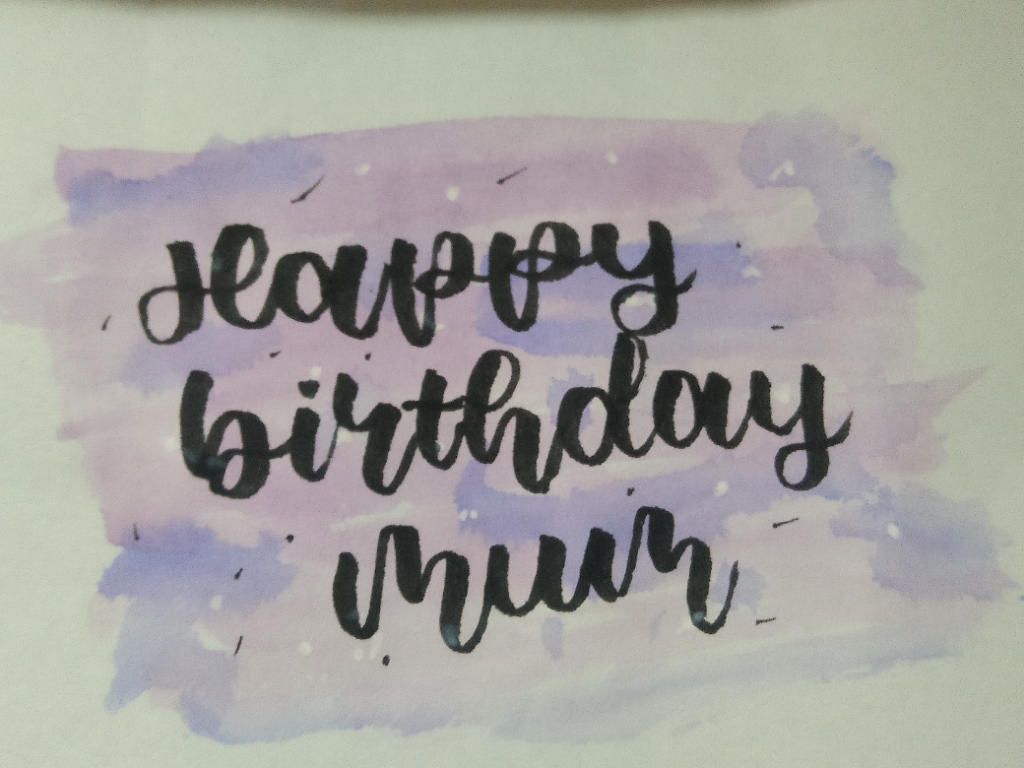 Happy
birthday
mum